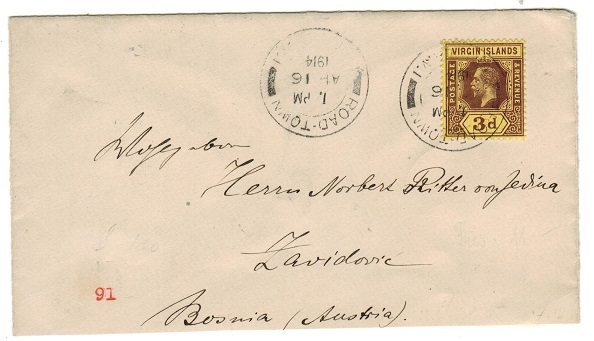 VIRGIN ISLANDS
POSTAGE & REVENUE
3d
ROAD-TOWN
1. PM
AP 16
1914
ROAD-TOWN
PM
Wohlgeboren
Herrn Norbert Ritter von Jedina
Zavidovic
Bosnia (Austria).
91